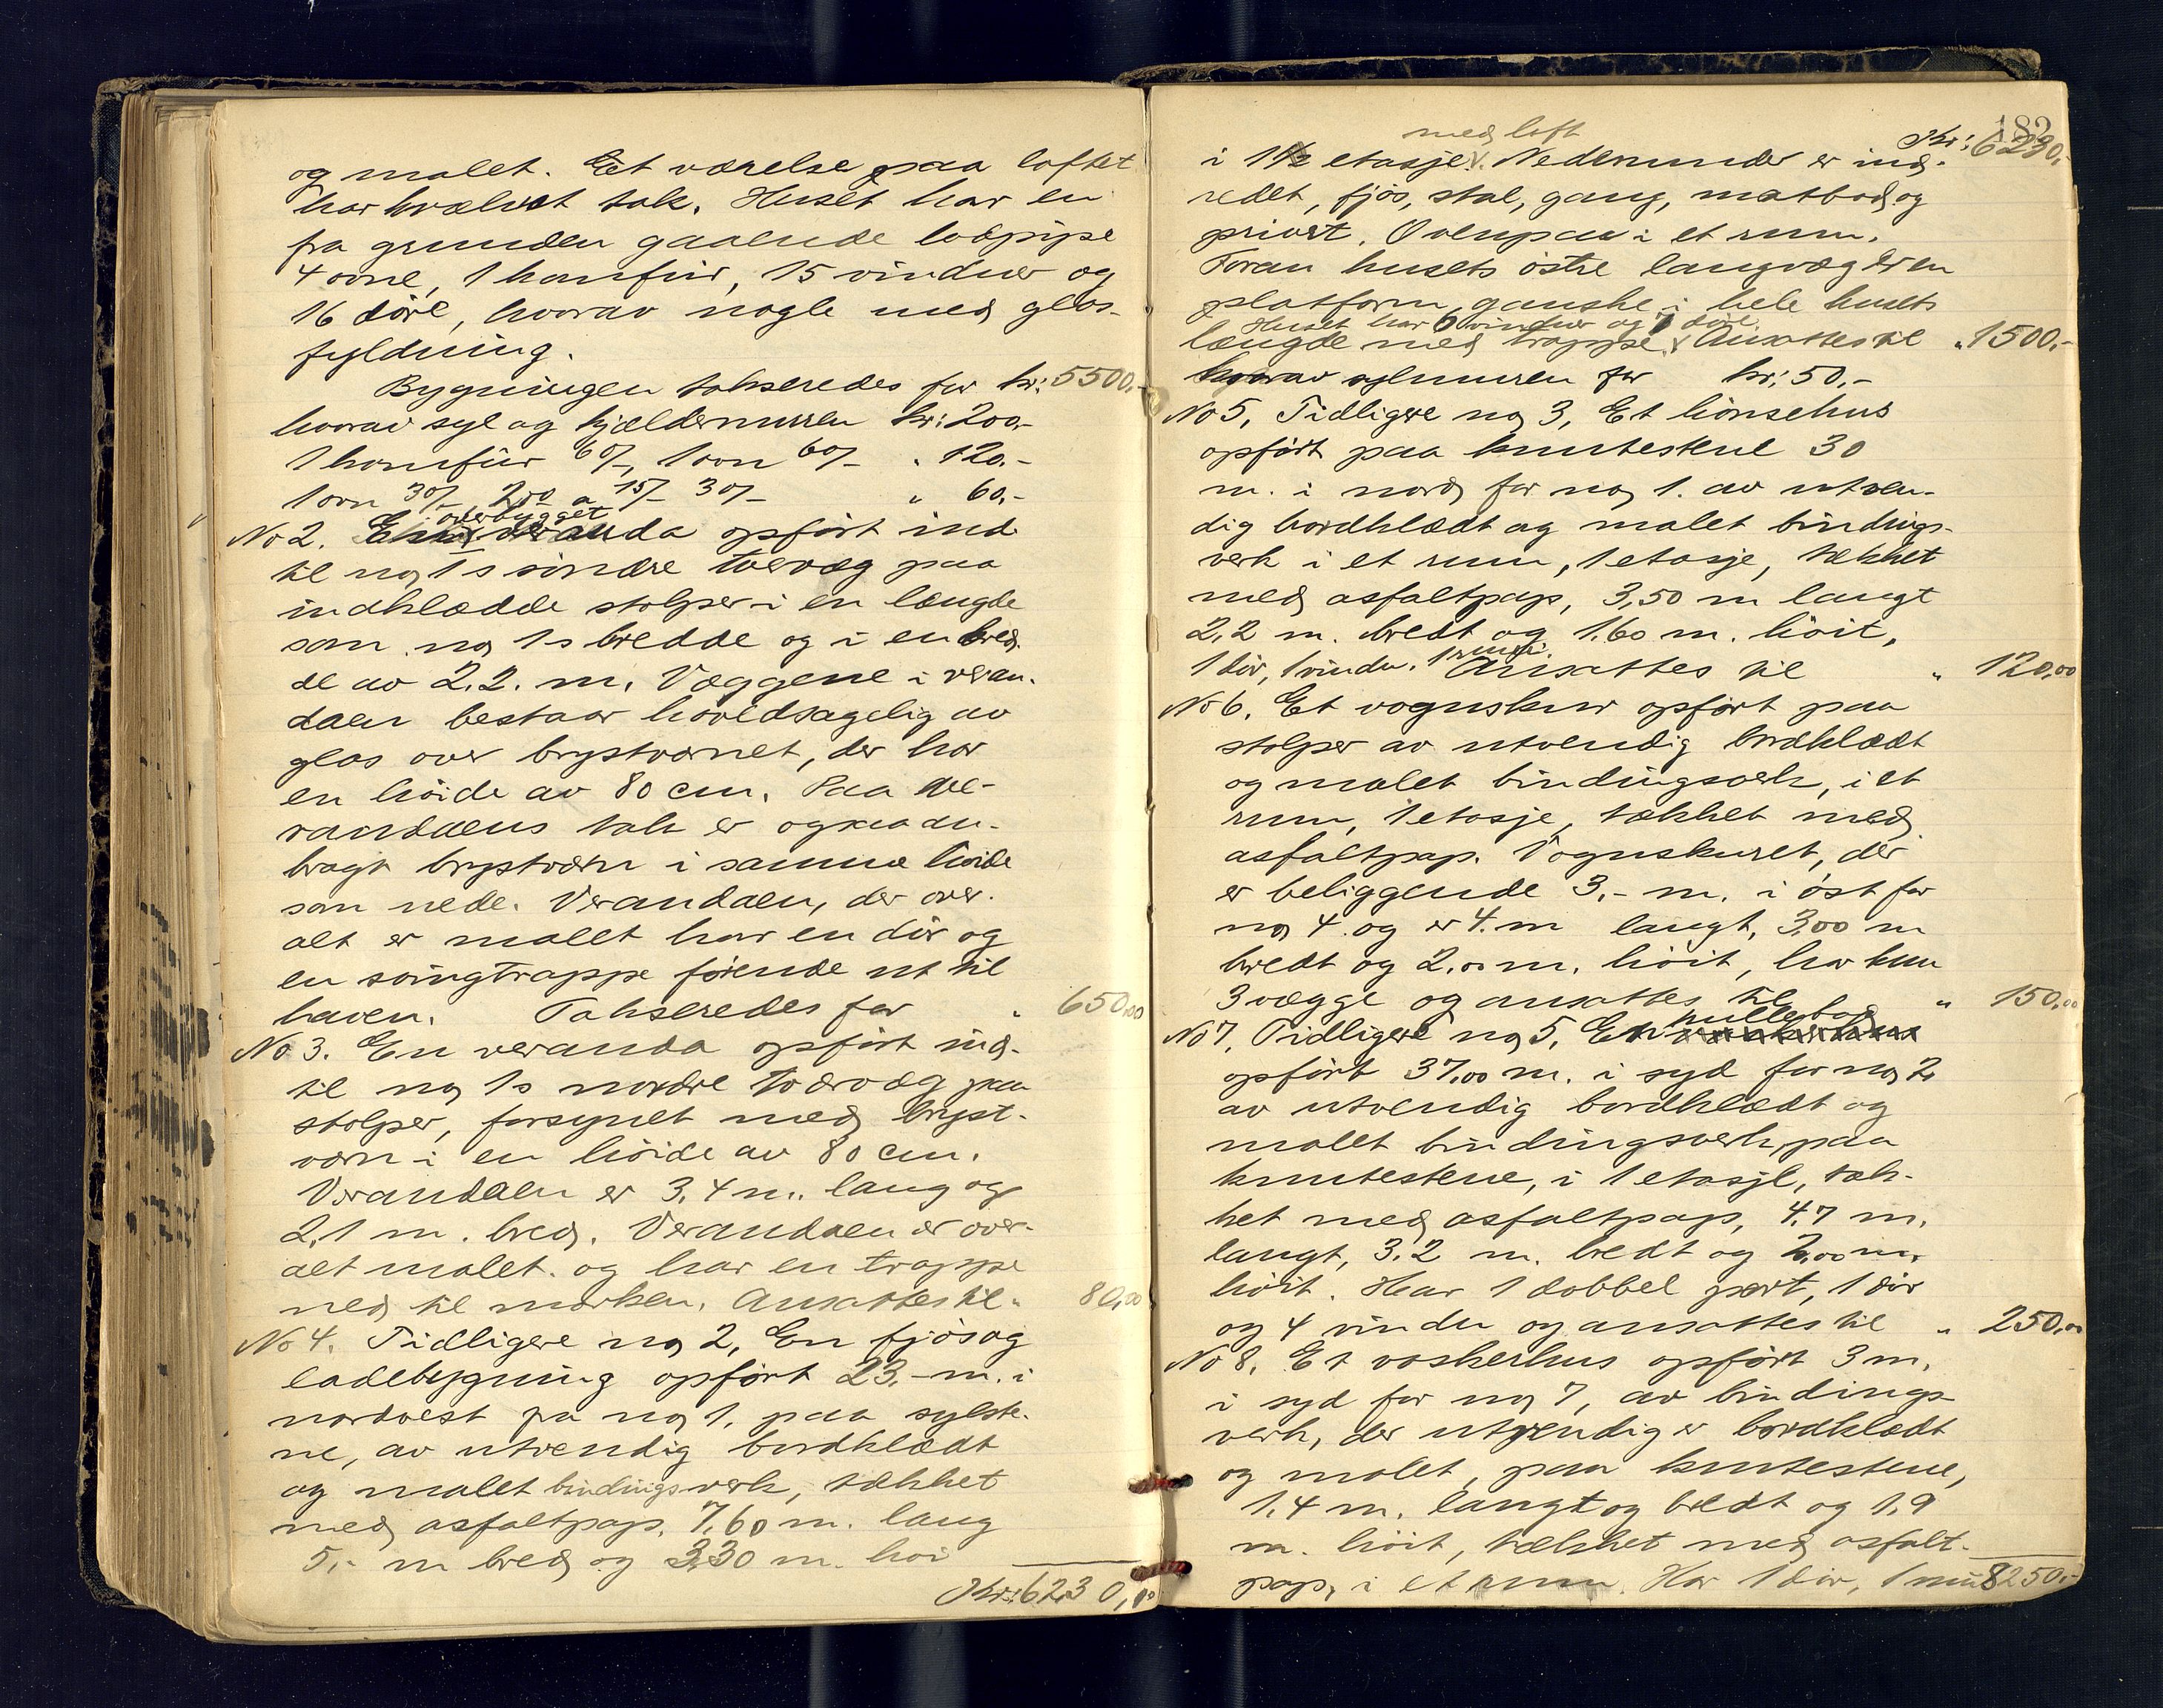 og malet. Eet værelse paa loftet
har hvælvet tak. Huset har en
fra grunden gaaende løpipe
4 ovne, 1 komfür, 15 vinduer og
16 döre, hvorav nogle med glas-
fyldning.
Bygningen takseredes for kr: 5500,-
hvorav syl og kjældermuren kr: 200,-
1 komfür 60/-, 1 ovn 60/- " 120,-
1 ovn 30/- 2 a 15/- 30/- " 60,-
overbygget
No 2. En veranda opfört ind
til no 1s söndre tvervæg paa
indklædde stolper i en længde
som no 1s bredde og i en bred-
de av 2.2. m. Væggene i veran-
daen bestaar hovedsagelig av
glas over brystværnet, der har
en höide av 80 cm. Paa ve-
randaens tak er ogsaa an-
bragt brystværn i samme höide
som nede. Verandaen, der over-
alt er malet har en dör og
en svingtrappe förende ut til
haven. Takseredes for " 650,00
No 3. En veranda opfört ind-
til no 1s nordre tværvæg paa
stolper, forsynet med bryst-
værn i en höide av 80 cm.
Verandaen er 3,4 m. lang og
2,1 m. bred. Verandaen er over-
alt malet. og har en trappe
ned til marken. Ansattes til " 80,00
No 4. Tidligere no 2, En fjös og
ladebygning opfört 23,- m. i
nordvest fra no 1, paa sylste-
ne, av utvendig bordklædt
og malet bindingsverk, tækket
med asfaltpap. 7,60 m. lang
5,- m bred og 3,30 m. höi
Kr: 6230,00
182
med loft
Kr: 6230,-
i 1 etasje. Nedenunder er ind-
redet, fjös, stal, gang, matbod og
privet. Ovenpaa i et rum.
Foran husets östre langvæg er en
platform, ganske i hele husets
Huset har 6 vinduer og 7 döre
længde med trappe. Ansattes til " 1500,-
hvorav sylmuren for kr: 50,-
No 5, Tidligere no 3, Et hönsehus
opfört paa kuntestene 30
m. i nord for no 1. av utven-
dig bordklædt og malet bindings-
verk i et rum, 1 etasje, tækket
med asfaltpap, 3,50 m langt
2,2 m. bredt og 1,60 m. höit,
1 dör, 1 vindu. 1 rum. Ansattes til " 120,00
No 6. Et vognskur opfört paa
stolper av utvendig bordklædt
og malet bindingsverk, i et
rum, 1 etasje, tækket med
asfaltpap. Vognskuret, der
er beliggende 3,- m. i öst for
no 4. og er 4. m langt, 3,00 m
bredt og 2,00 m. höit, har kun
3 vægge og ansattes til " 150,00
No 7. Tidligere no 5, En
opfört 37,00 m. i syd for no 2
av utvendig bordklædt og
malet bindingsverk, paa
kuntestene, i 1 etasje, tæk-
ket med asfaltpap, 4,7 m.
langt, 3,2 m. bredt og 2,00 m.
höit. Har 1 dobbel port, 1 dör
og 4 vindu og ansattes til " 250,00
No 8. Et vaskerhus opfört 3 m.
i syd for no 7, av bindings
verk, der utvendig er bordklædt
og malet, paa kuntestene,
1,4 m. langt og bredt og 1,9
m. höit, tækket med asfalt-
pap, i et rum. Har 1 dör, 1 8250,-